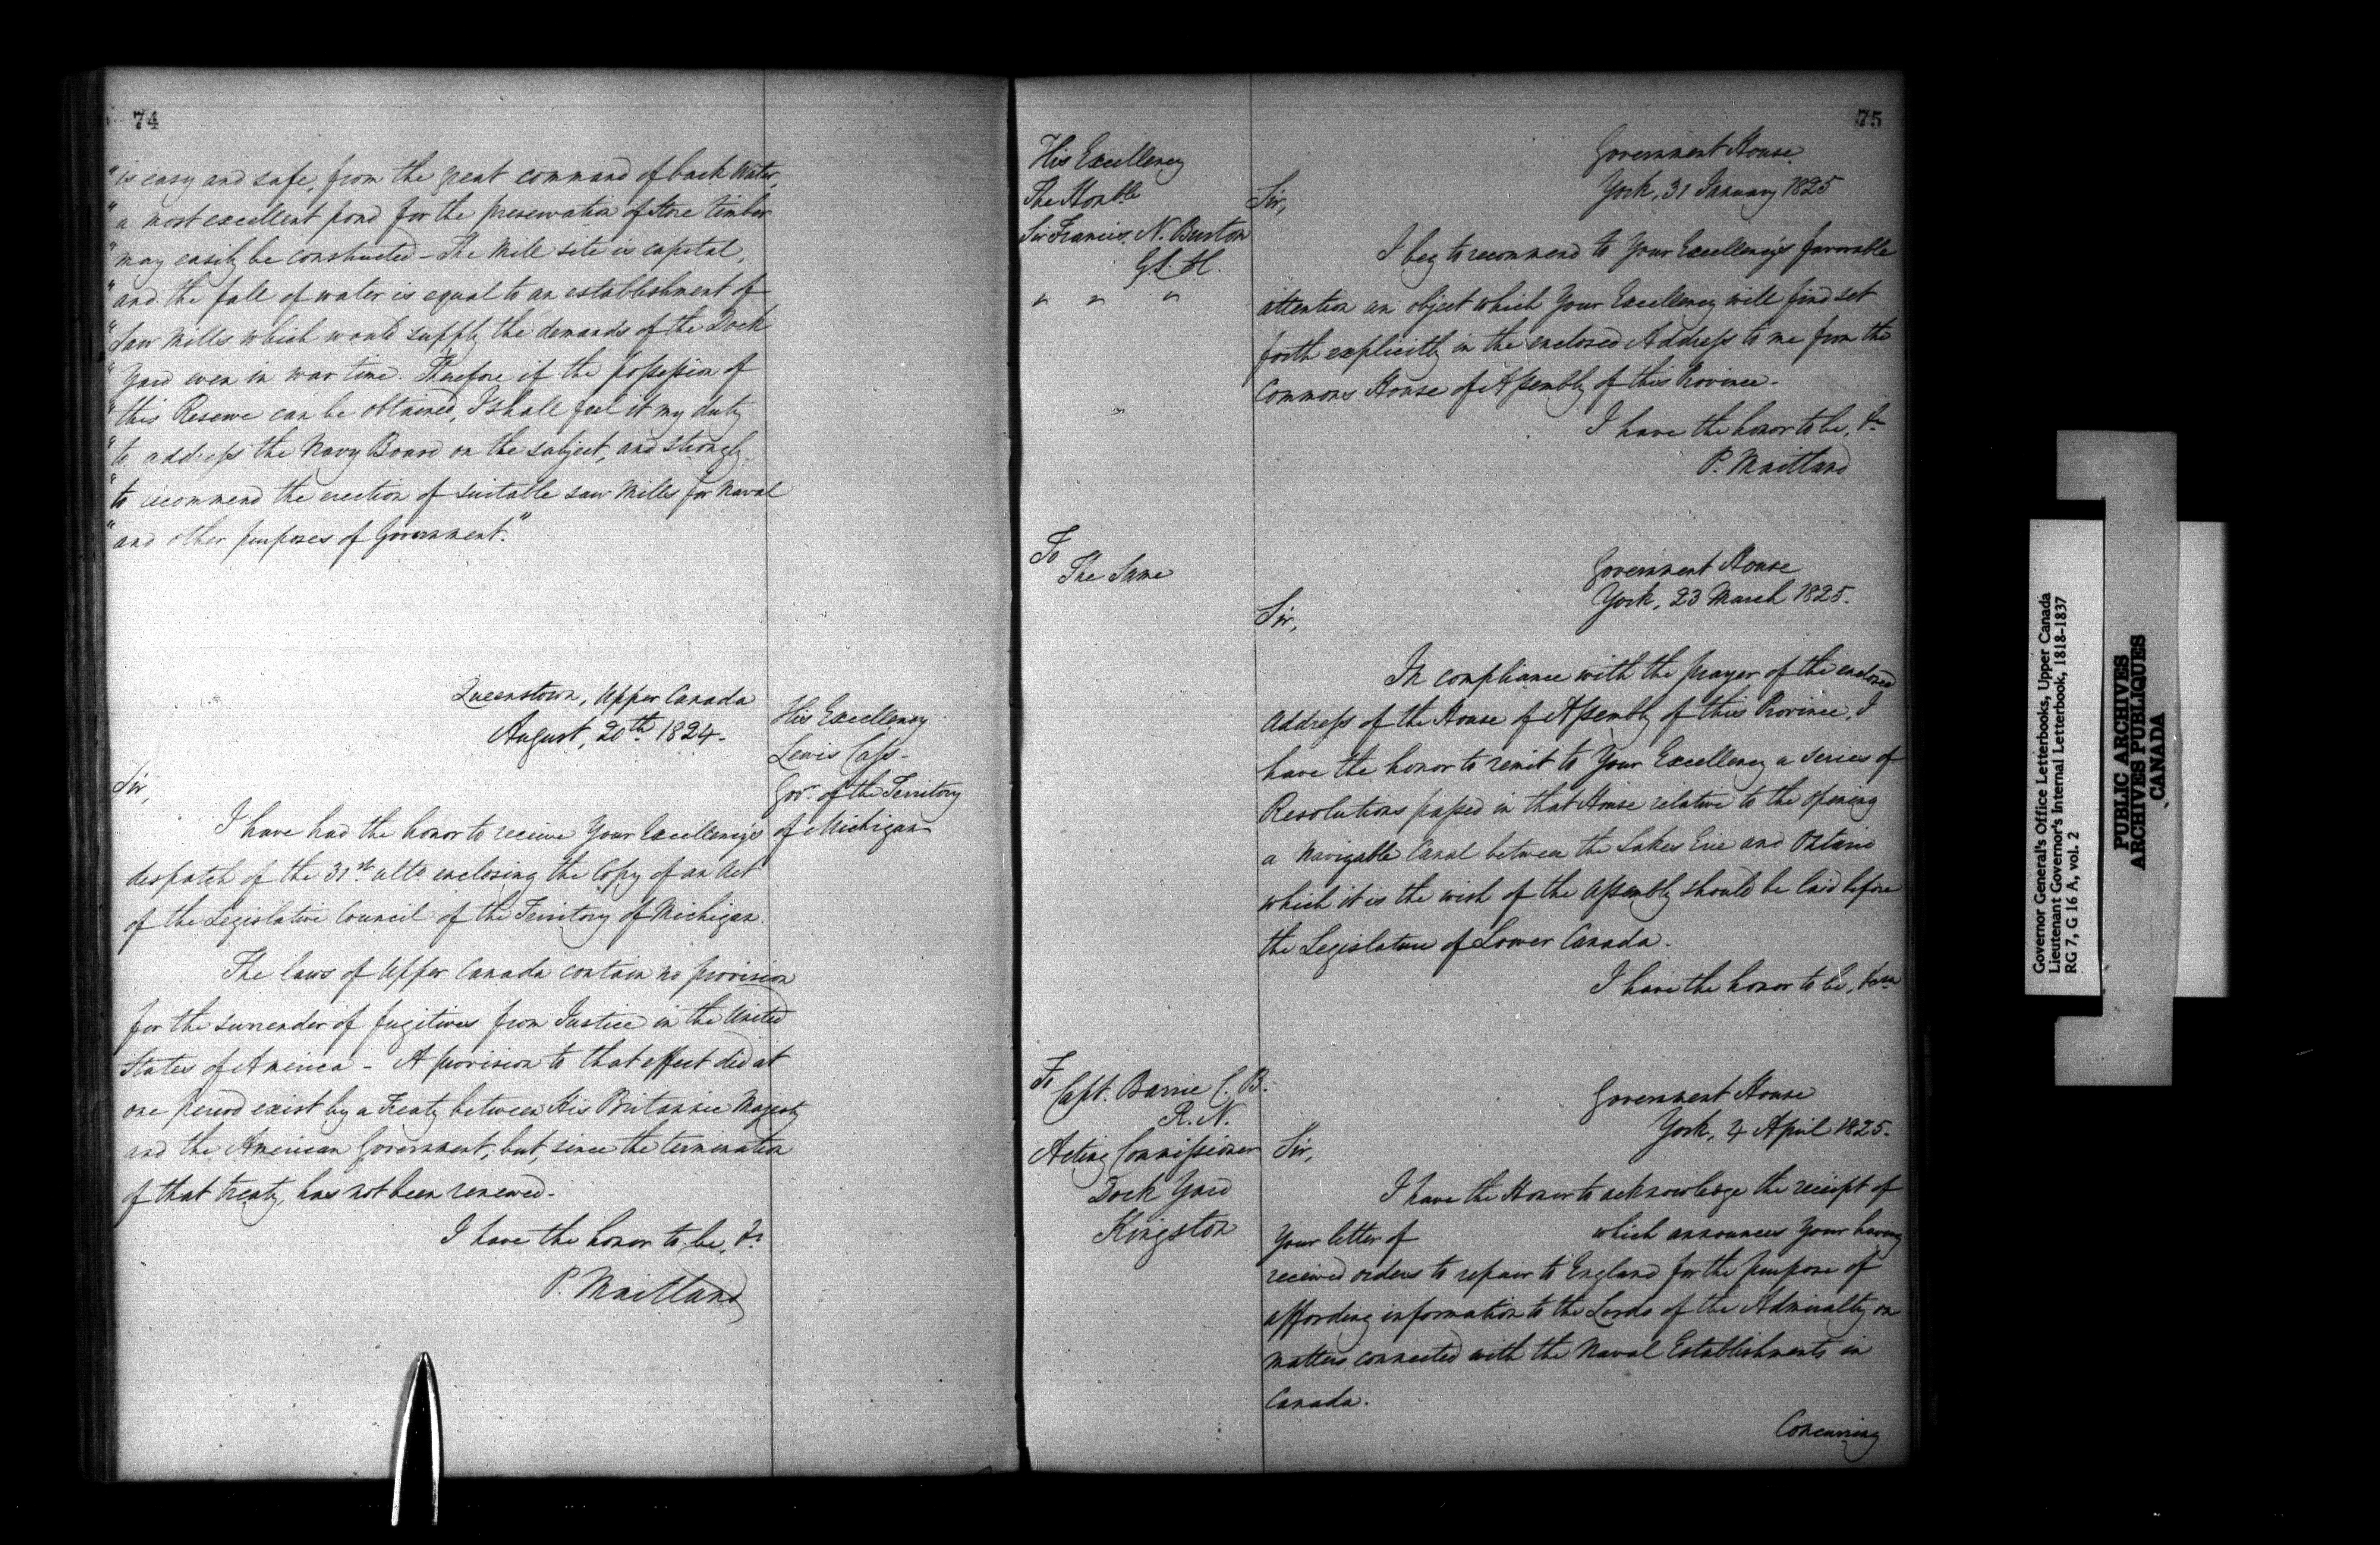 74
"is easy and safe, from the great command of back Water,
"a most excellent pond for the preservation of store timber
"may easily be constructed - The Mill site is capital,
"and the fall of water is equal to an establishment of
"Saw Mills which would supply the demands of the Dock
"Yard even in war time. Therefore if the possession of
"this Reserve can be obtained, I shall feel it my duty
"to address the Navy Board on the subject, and strongly
"to recommend the erection of suitable saw Mills for Naval
"and other purposes of Government."
Queenstown, Upper Canada
August, 20th 1824.
His Excellency
Lewis Cass -
Govr. of the Territory
of Michigan
Sir,
I have had the honor to receive Your Excellency's
despatch of the 31st ulto enclosing the Copy of an Act
of the Legislative Council of the Territory of Michigan.
The laws of Upper Canada contain no provision
for the surrender of fugitives from Justice in the United
States of America - A provision to that effect did at
one period exist by a Treaty between His Britannic Majesty
and the American Government, but, since the termination
of that treaty, has not been renewed.
I have the honor to be, &c
P. Maitland
75
His Excellency
The Honble
Sir Francis N. Burton
G.C.H.
" " "
"
Government House
York, 31 January 1825
Sir,
I beg to recommend to Your Excellency's favorable
attention an object which Your Excellency will find set
forth explicitly in the enclosed Address to me from the
Commons House of Assembly of this Province.
I have the honor to be, &c
P. Maitland
To
The Same
Government House
York, 23 March 1825.
Sir,
In compliance with the prayer of the enclosed
Address of the House of Assembly of this Province, I
have the honor to remit to Your Excellency a series of
Resolutions passed in that House relative to the opening
a Navigable Canal between the Lakes Erie and Ontario
which it is the wish of the Assembly should be laid before
the Legislature of Lower Canada.
I have the honor to be, &c
To
Capt. Barrie C.B.
R.N.
Acting Commissioner
Dock Yard
Kingston
Government House
York, 4 April 1825.
Sir,
I have the Honor to acknowledge the receipt of
Your letter of which announces Your having
received orders to repair to England for the purpose of
affording information to the Lords of the Admiralty on
matters connected with the Naval Establishments in
Canada.
Concurring
Governor General's Office Letterbooks, Upper Canada
Lieutenant Governor's Internal Letterbook, 1818-1837
RG 7, G 16 A, vol. 2
PUBLIC ARCHIVES
ARCHIVES PUBLIQUES
CANADA